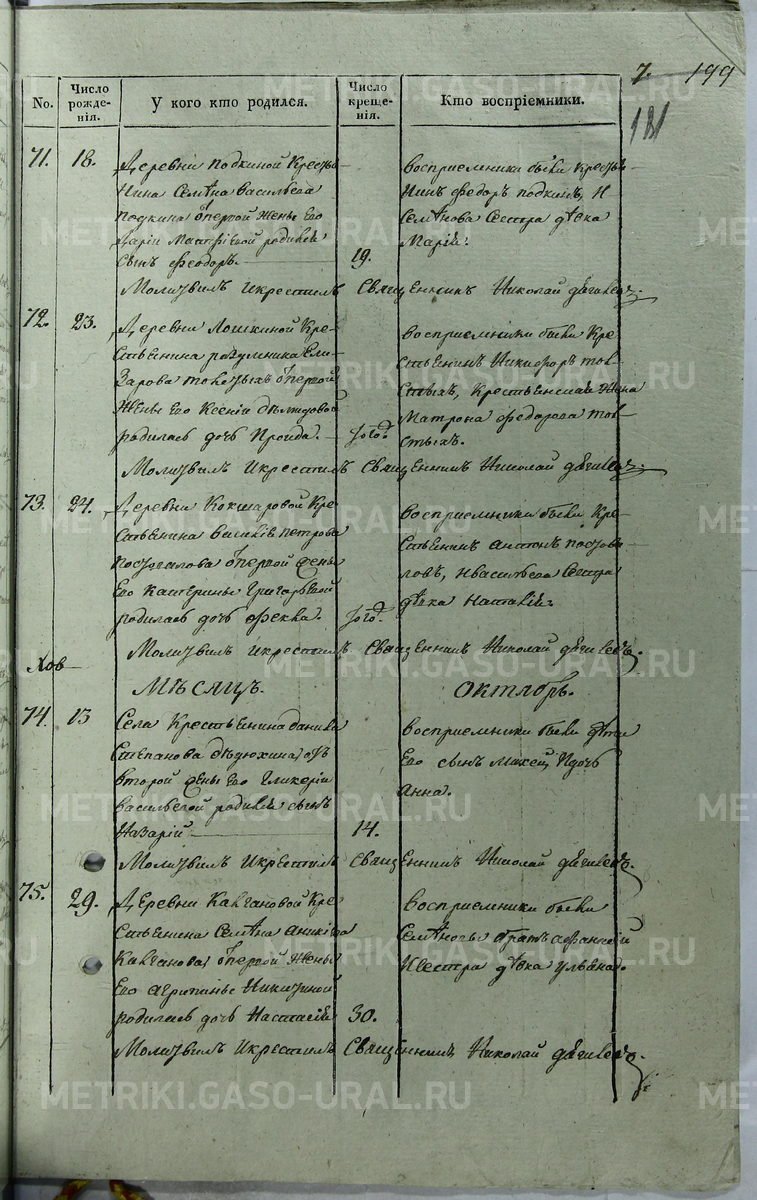 7. 199
181
No. Число рожденія. У кого кто родился. Число крещенія. Кто воспріемники.
71. 18. Деревни Подкиной Кресть-
янина Семѣна Васильева
Подкина Ѿ первой жены Его
Даріи родился
сынъ Феодоръ. 19.
Восприемники были Кресть-
янинъ Федоръ Подкинъ, И
Семѣнова Сестра дѣвка
Марія:
Молитвилъ Икрестилъ Священникъ Николай
72. 23. Деревни Лошкиной Кре-
стьенина Ели-
зарова Ѿ первой
жены Его Ксеніи
родилась дочь
Восприемники были Кре-
стьенинъ Никифоръ Тол-
стыхъ, Крестьенская жена
Матрона Федорова Тол-
стыхъ.
Молитвилъ Икрестилъ Священникъ Николай
73. 24. Деревни Кокшаровой Кре-
стьенина Василія Петрова
Ѿ первой жены
Его Катерины Григорьевой
родилась дочь Фекла.
Восприемники были Кре-
стьенинъ Антонъ
Ивасильева Сестра
дѣвка Наталія:
Молитвилъ Икрестилъ Священникъ Николай
МѢСЯЦЪ. ОКТЯБРЬ.
74. 13 Села Крестьенина Данила
Степанова Ѿ
второй жены Его Гликеріи
Васильевой родился сынъ
Назарій 14.
Восприемники были дѣти
Его сынъ Идочь
Анна.
Молитвилъ Икрестилъ Священникъ Николай
75. 29. Деревни Калгановой Кре-
стьенина Семѣна Аникіева
Калганова, Ѿ первой жены
Его Агрипины Никитиной
родилась дочь Настасія 30.
Восприемники были
Семѣновы братъ Афанасій
Исестра дѣвка Ульяна.
Молитвилъ Икрестилъ Священникъ Николай
METRIKI.GASO-URAL.RU